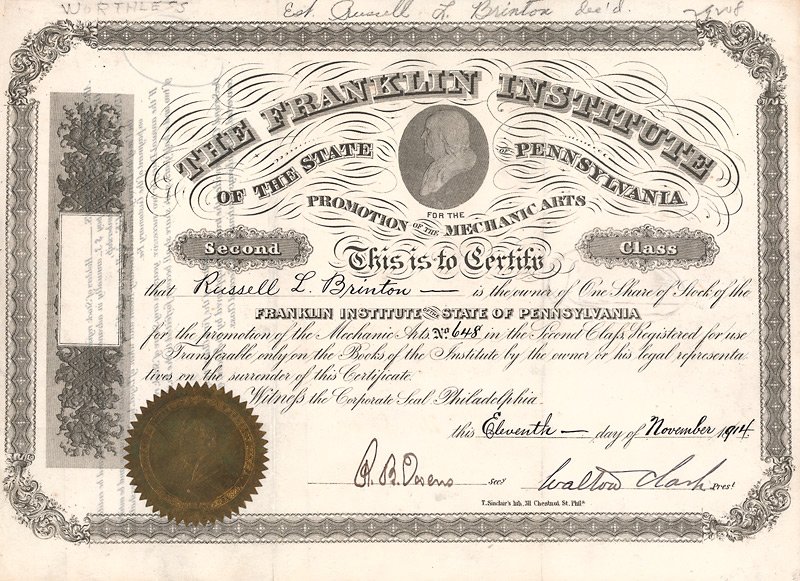 WORTHLESS Est. Russell L. Brinton dec'd.
THE FRANKLIN INSTITUTE
OF THE STATE OF PENNSYLVANIA
FOR THE
PROMOTION OF THE MECHANIC ARTS
Second Class
This is to Certify
that Russell L. Brinton — is the owner of One Share of Stock of the
FRANKLIN INSTITUTE OF THE STATE OF PENNSYLVANIA
for the promotion of the Mechanic Arts. No. 648 in the Second Class Registered for use
Transferable only on the Books of the Institute by the owner or his legal representa
tives on the surrender of this Certificate.
Witness the Corporate Seal Philadelphia.
this Eleventh — day of November 1914
R. B. Owens Secy. Walton Clark Prest.
T. Sinclair's lith, 311 Chestnut, St. Phila